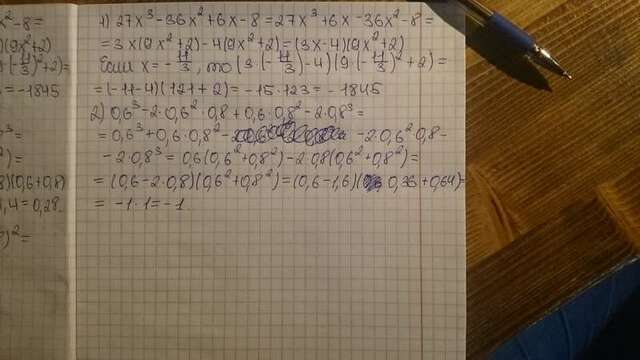 x²-8=
)(9x²+2)
9(-11/3)²+2)=
=-1845
3³=
²)=
8)(0,6+0,8)
1,4=0,28.
)²=
1) 27x³-36x²+6x-8=27x³+6x-36x²-8=
=3x(9x²+2)-4(9x²+2)=(3x-4)(9x²+2)
Если x=-11/3, то (3·(-11/3)-4)(9(-11/3)²+2)=
=(-11-4)(121+2)=-15·123=-1845
2) 0,6³-2·0,6²·0,8+0,6·0,8²-2·0,8³=
=0,6³+0,6·0,8²- -2·0,6²·0,8-
-2·0,8³=0,6(0,6²+0,8²)-2·0,8(0,6²+0,8²)=
=(0,6-2·0,8)(0,6²+0,8²)=(0,6-1,6)(0,36+0,64)=
=-1·1=-1